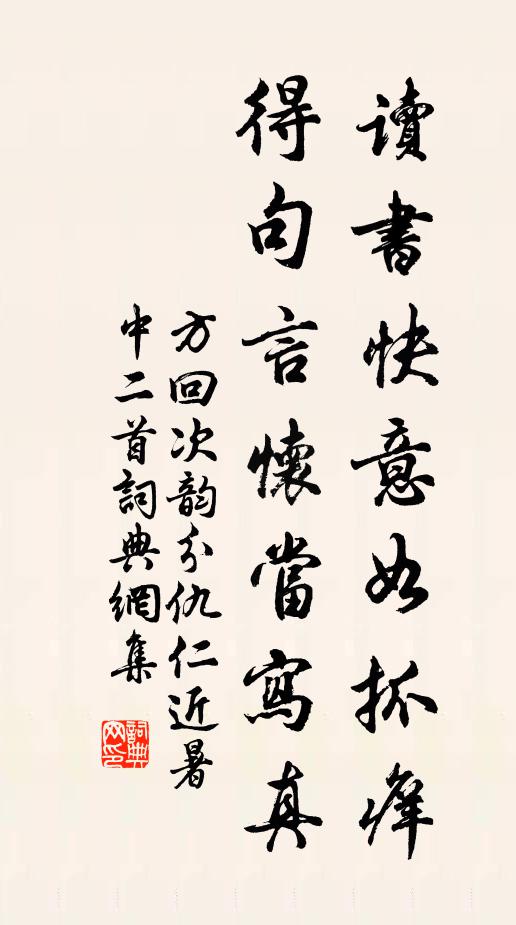 讀書快意如抓癢
得句言懷當寫真
方回次韵分仇仁近暑
中二首詞典網集
詞典
网印